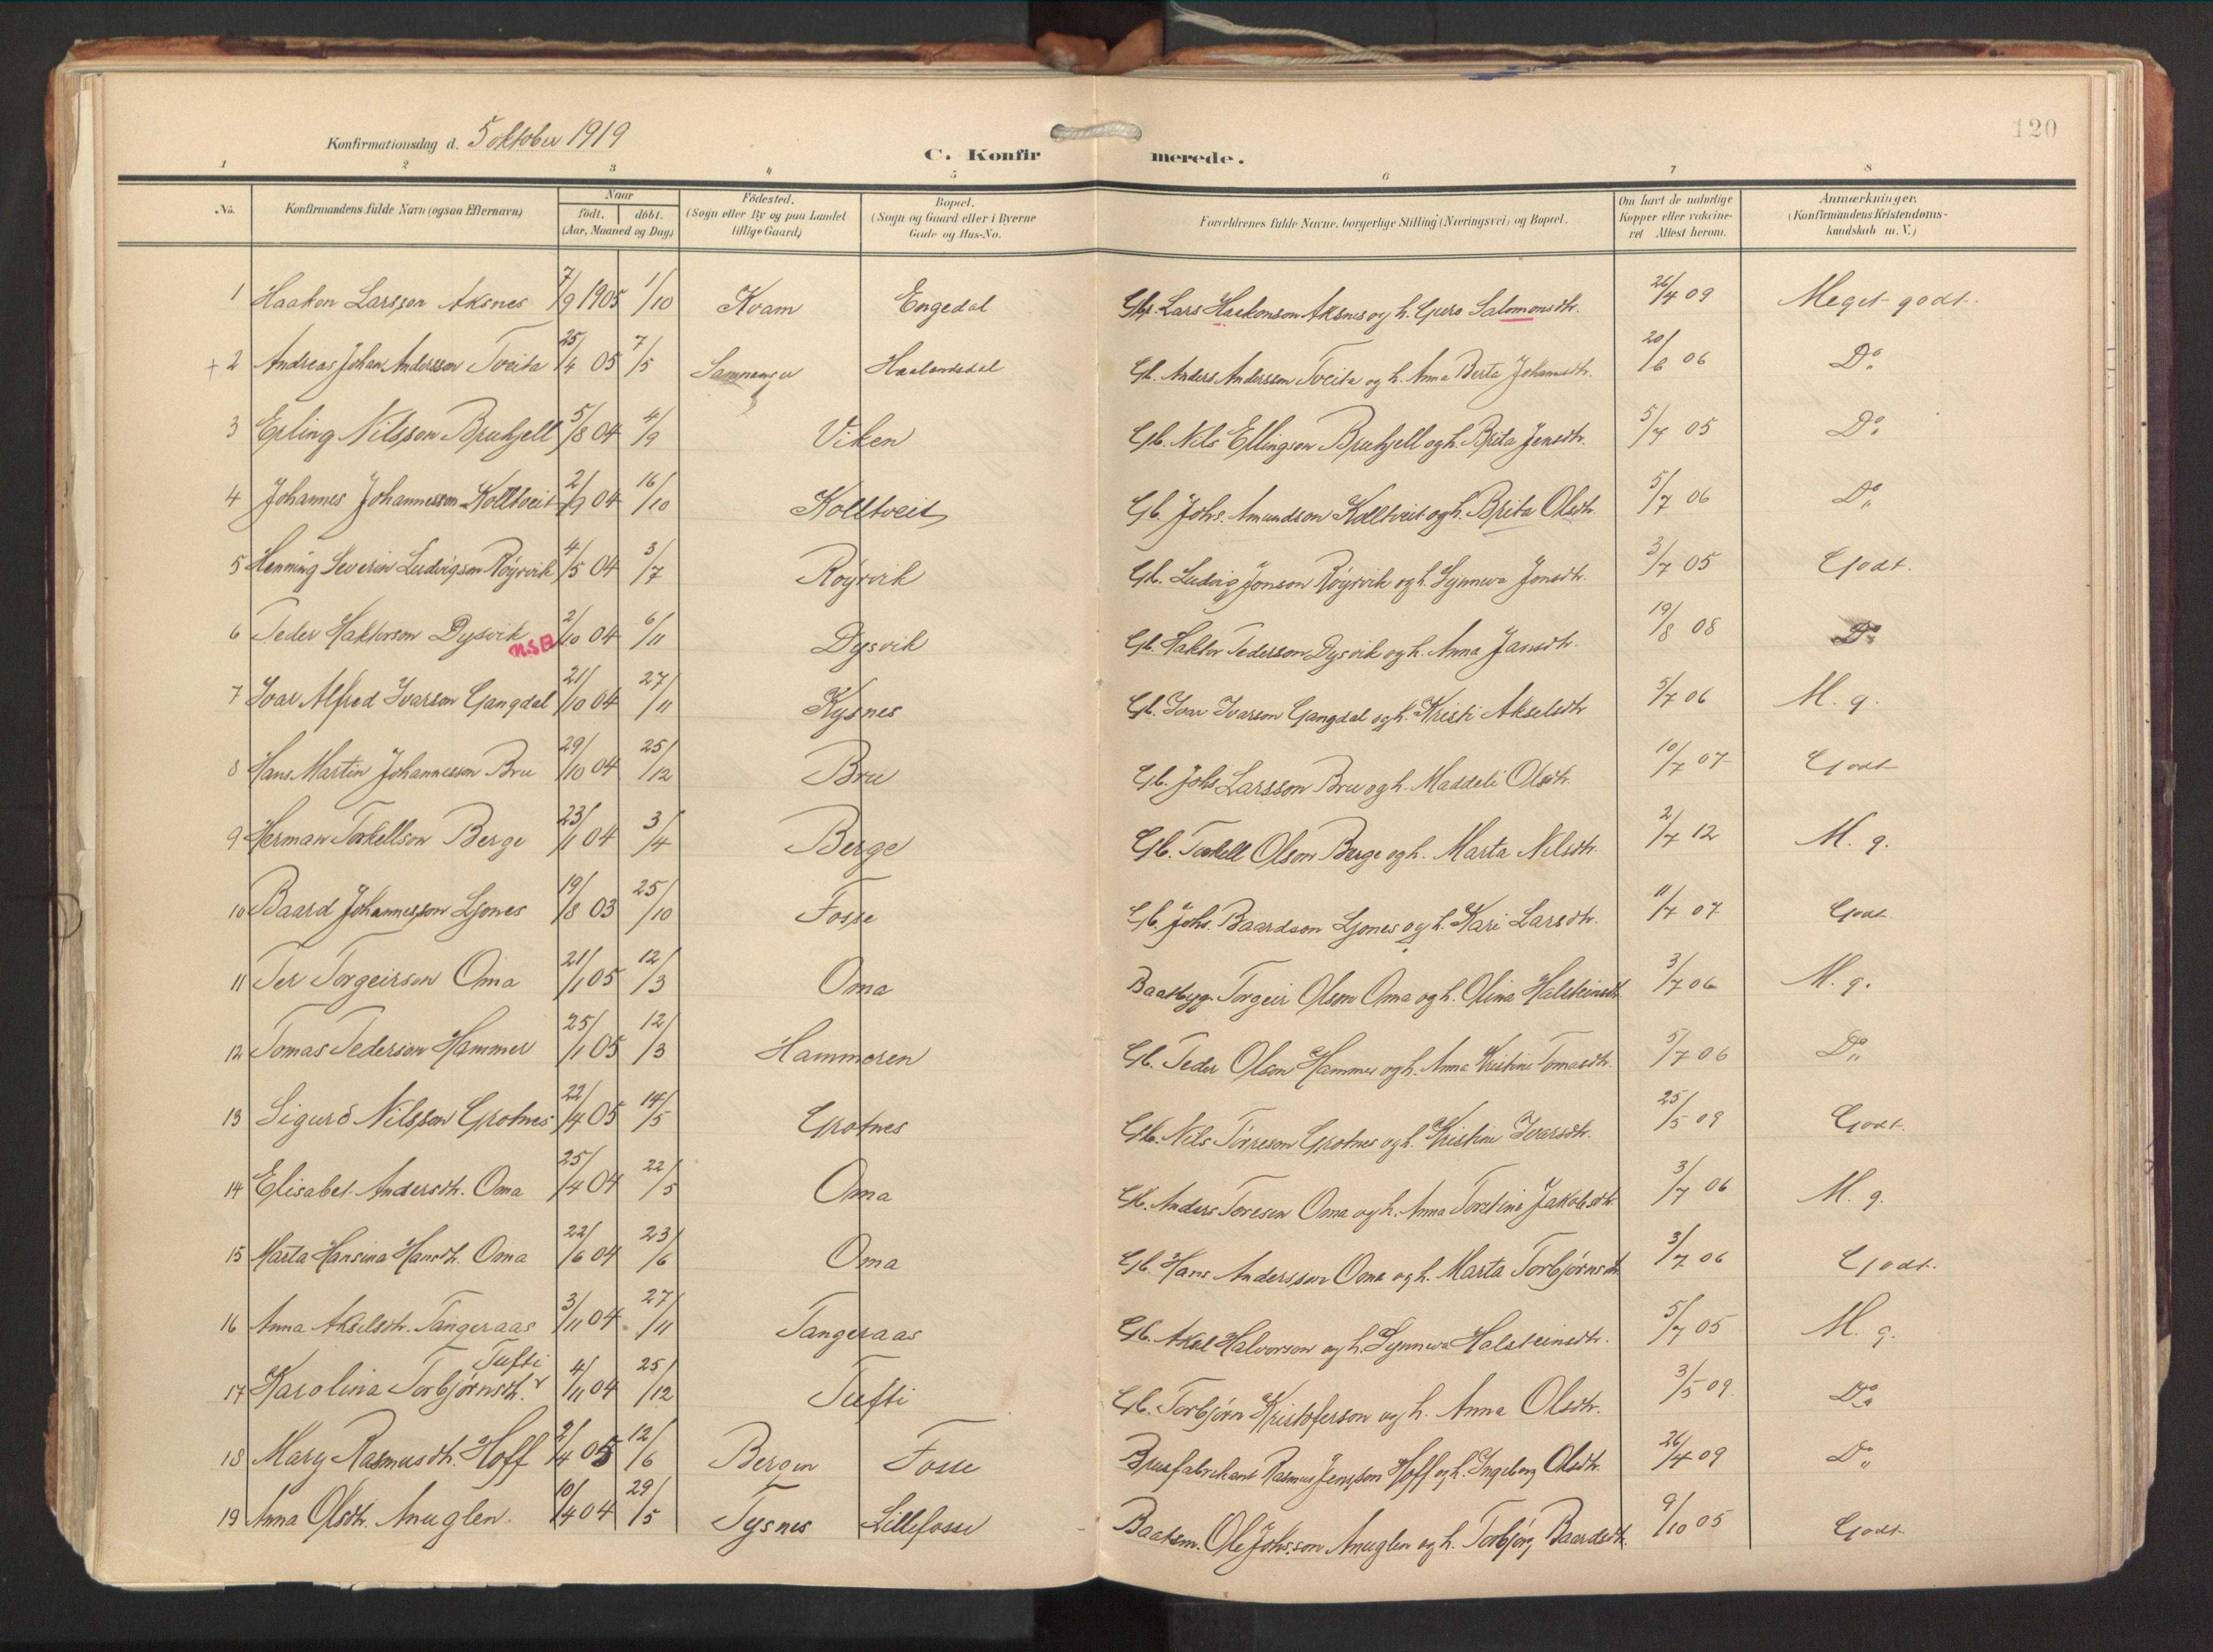 120
Konfirmationsdag d. 5 oktober 1919
C. Konfirmerede.
1 2 3 4 5 6 7 8
No. Konfirmandens fulde Navn (ogsaa Efternavn) Naar født. døbt. (Aar, Maaned og Dag) Fødested. (Sogn eller By og paa Landet tillige Gaard) Bopæl. (Sogn og Gaard eller i Byerne Gade og Hus-No. Forældrenes fulde Navne, borgerlige Stilling (Næringsvei) og Bopæl. Om havt de naturlige Kopper eller vakcineret Attest herom. Anmærkninger. (Konfirmandens Kristendomskundskab m. V.)
1 Haakon Larsson Aksnes 7/9 1905 1/10 Kvam Engedal Gbr. Lars Haakonson Aksnes og h. Guro Salomonsdtr. 26/4 09 Meget godt.
+ 2 Andreas Johan Andersson Tveita 25/4 05 7/5 Samnanger Haalandsdal Gb. Anders Andersson Tveita og h. Anna Berta Johannsdtr. 20/6 06 Do.
3 Erling Nilsson Bruhjell 5/8 04 4/9 Viken Gb. Nils Ellingson Bruhjell og h. Brita Jensdtr. 5/7 05 Do.
4 Johannes Johannesson Kolltveit 2/9 04 16/10 Kolltveit Gb. Johs. Amundson Kolltveit og h. Brita Olsdtr. 5/7 06 Do.
5 Henning Severin Ludvigson Røyrvik 4/5 04 3/7 Røyrvik Gb. Ludvig Jonson Røyrvik og h. Synneva Jonsdtr. 3/7 05 Godt.
6 Peder Haktorson Dysvik N.S.B. 2/10 04 6/11 Dysvik Gb. Haktor Pederson Dysvik og h. Anna Jansdtr. 19/8 08 Do.
7 Ivar Alfred Ivarson Gangdal 21/10 04 27/11 Kysnes Gb. Ivar Ivarson Gangdal og h. Kristi Akselsdtr 5/7 06 M. g.
8 Hans Martin Johannesson Bru 29/10 04 25/12 Bru Gb. Johs Larsson Bru og h. Maddeli Olsdtr. 10/7 07 Godt
9 Herman Torkellson Berge 23/1 04 3/4 Berge Gb. Torkell Olson Berge og h. Marta Nilsdtr. 2/7 12 M. g.
10 Baard Johannesson Ljones 19/8 03 25/10 Fosse Gb. Johs. Baardson Ljones og h. Kari Larsdtr. 11/7 07 Godt
11 Per Torgeirson Oma 21/1 05 12/3 Oma Baatbygg. Torgeir Olson Oma og h. Olina Halsteinsdtr. 3/7 06 M. g.
12 Tomas Pederson Hammer 25/1 05 12/3 Hammeren Gb. Peder Olson Hammer og h. Anna Kristine Tomasdtr. 5/7 06 Do.
13 Sigurd Nilsson Grotnes 22/4 05 14/5 Grotnes Gb. Nils Torreson Grotnes og h. Kristine Ivarsdtr. 25/5 09 Godt.
14 Elisabet Andersdtr. Oma 25/4 04 22/5 Oma Gb. Anders Toreson Oma og h. Anna Torstina Jakobsdtr. 3/7 06 M. g.
15 Marta Hansina Hansdtr. Oma 22/6 04 23/6 Oma Gb. Hans Andersson Oma og h. Marta Torbjørnsdtr 3/7 06 Godt.
16 Anna Akselsdtr. Tangeraas 3/11 04 27/11 Tangeraas Gb. Aksel Halvorson og h. Synneva Halsteinsdtr. 5/7 05 M. g.
17 Karolina Torbjørnsdtr. Tufti 4/11 04 25/12 Tufti Gb. Torbjørn Kristoferson og h. Anna Olsdtr. 3/5 09. Do.
18 Mary Rasmusdtr. Hoff 2/4 05 12/6 Bergen Fosse Brusfabrikant Rasmus Jensson Hoff og h. Ingeborg Olsdtr. 26/4 09 Do.
19 Anna Olsdtr. Anuglen. 10/4 04 29/5 Tysnes Lillefosse Baatsm. Ole Johs.son Anuglen og h. Torbjørg Baardsdtr. 9/10 05 Godt.